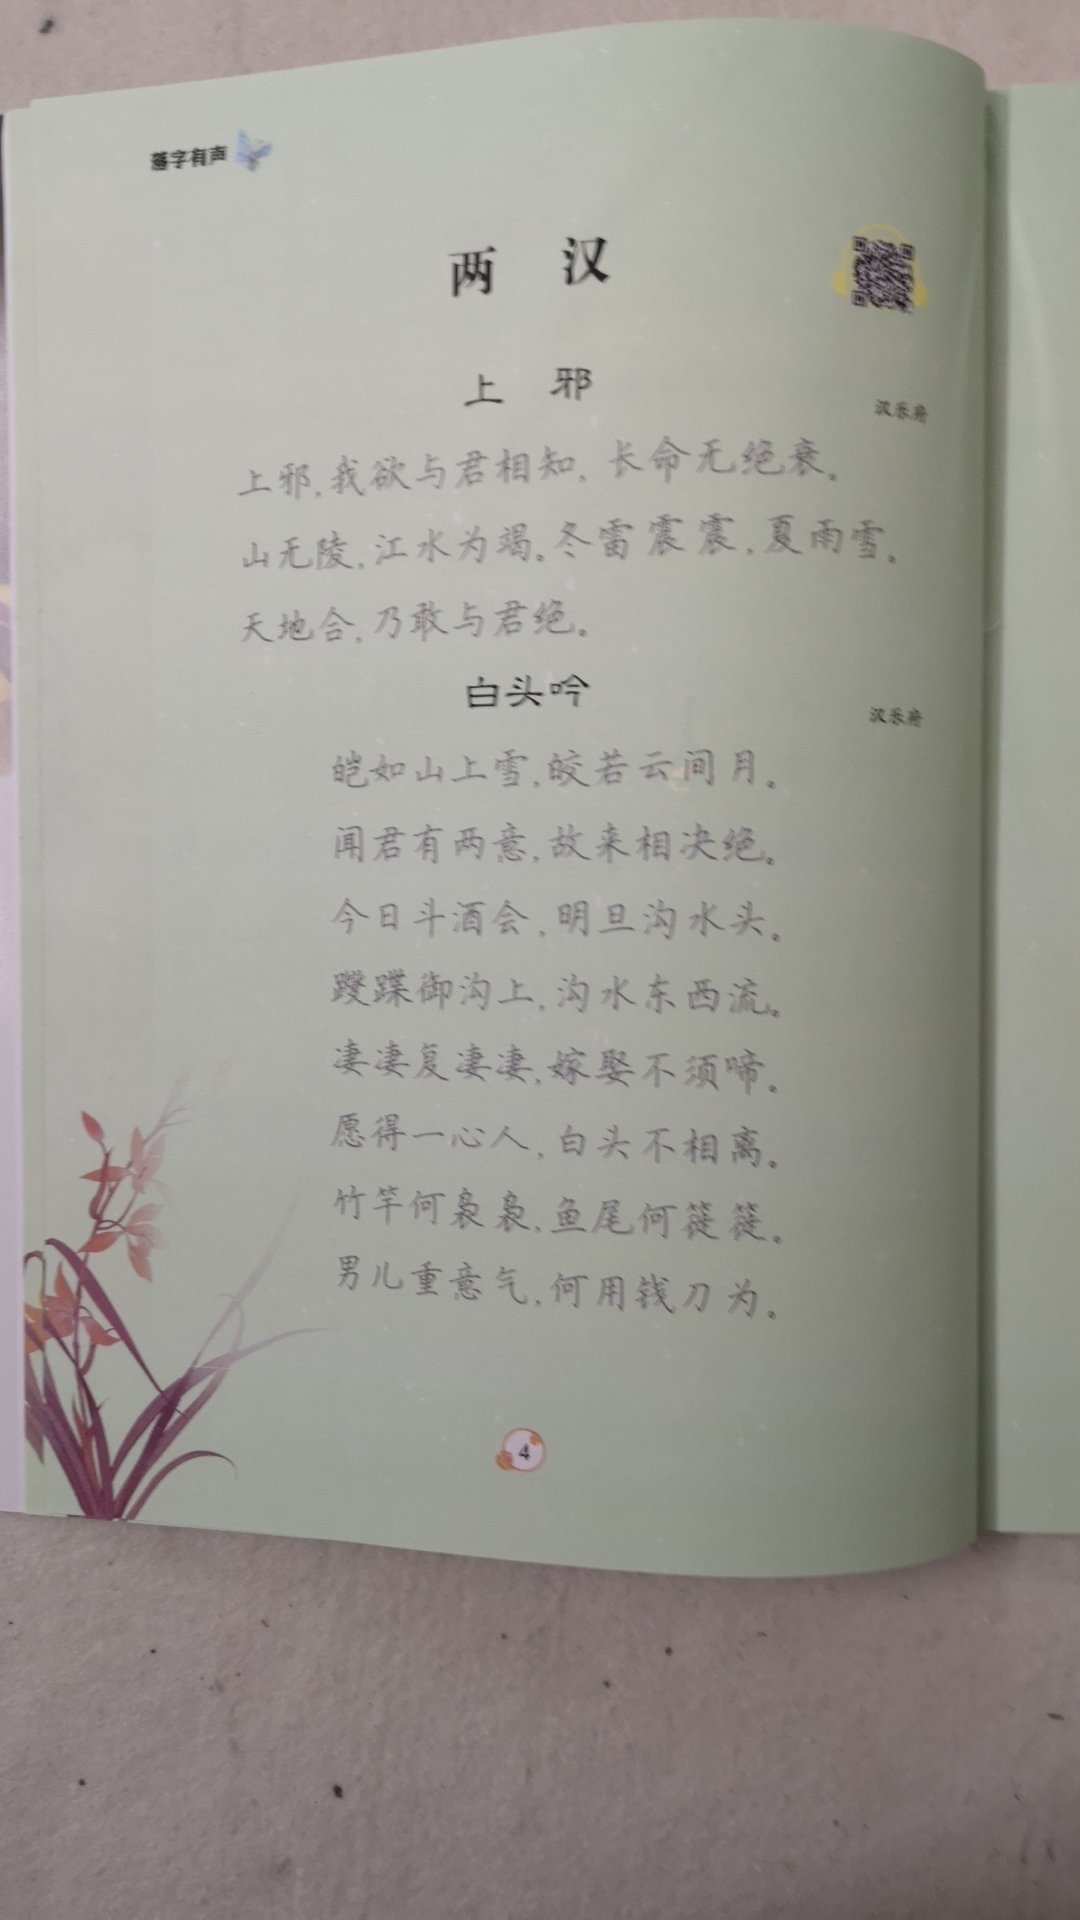 落字有声
两 汉
上 邪
汉乐府
上邪,我欲与君相知,长命无绝衰。
山无陵,江水为竭。冬雷震震,夏雨雪。
天地合,乃敢与君绝。
白头吟
汉乐府
皑如山上雪,皎若云间月。
闻君有两意,故来相决绝。
今日斗酒会,明旦沟水头。
躞蹀御沟上,沟水东西流。
凄凄复凄凄,嫁娶不须啼。
愿得一心人,白头不相离。
竹竿何袅袅,鱼尾何簁簁。
男儿重意气,何用钱刀为。
4